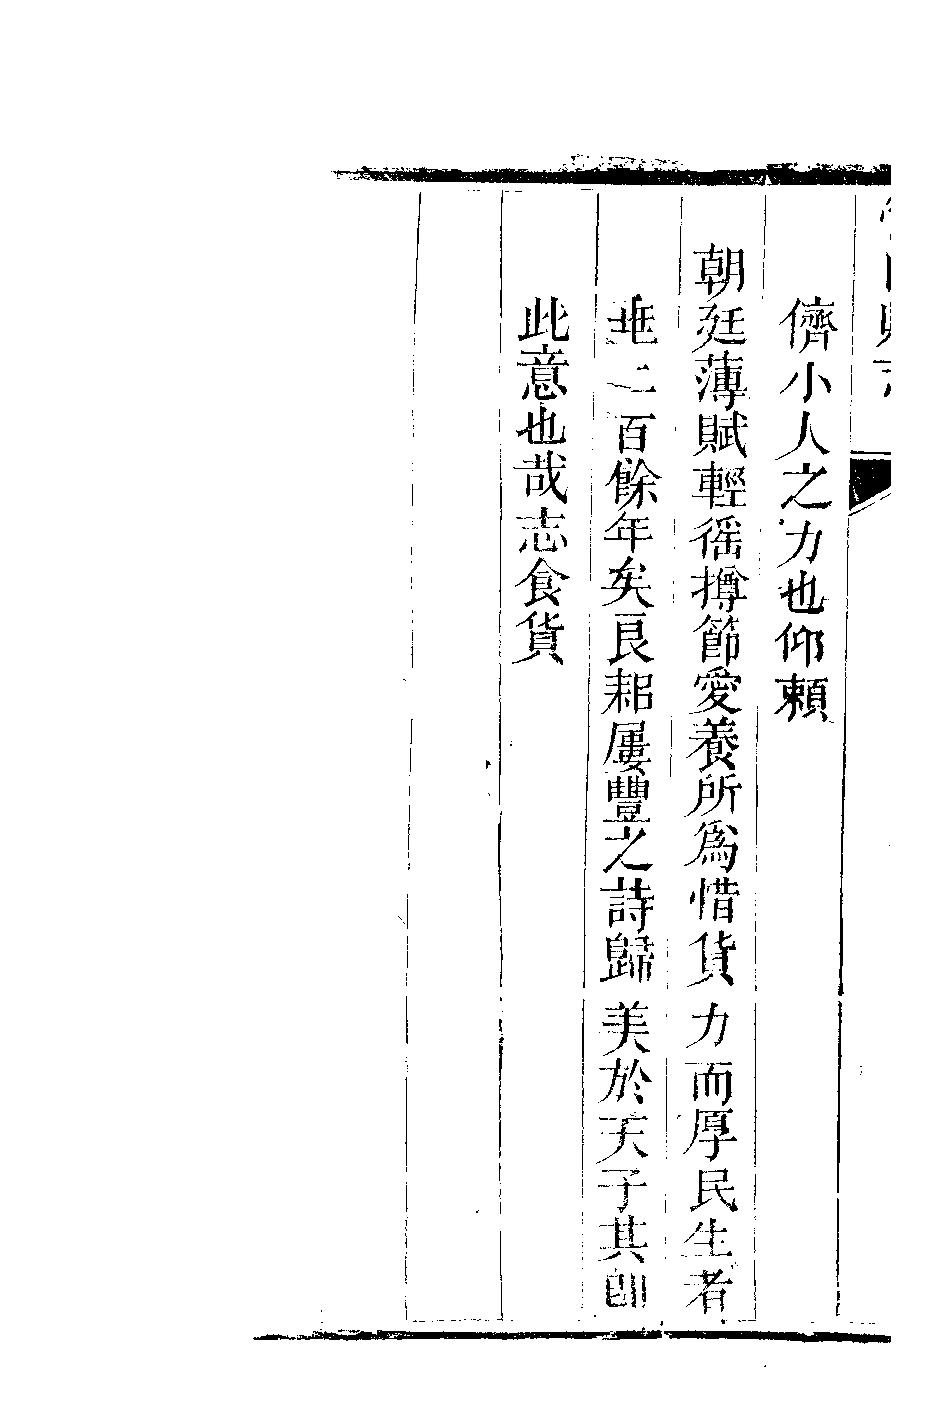 儕小人之力也仰頼
朝廷薄賦輕徭撙節愛養所爲惜貨力而厚民生者
垂二百餘年矣良耜屢豐之詩歸美於天子其卽
此意也哉志食貨